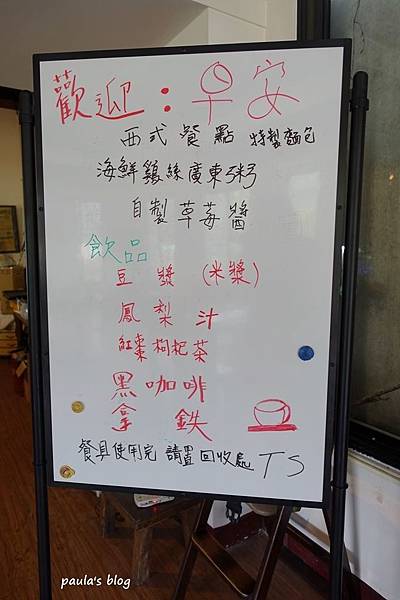 歡迎：早安
西式餐點 特製麵包
海鮮雞絲廣東粥
自製草莓醬
飲品
豆漿 (米漿)
鳳梨汁
紅棗枸杞茶
黑咖啡
拿鉄
餐具使用完 請置回收處 TS
paula's blog